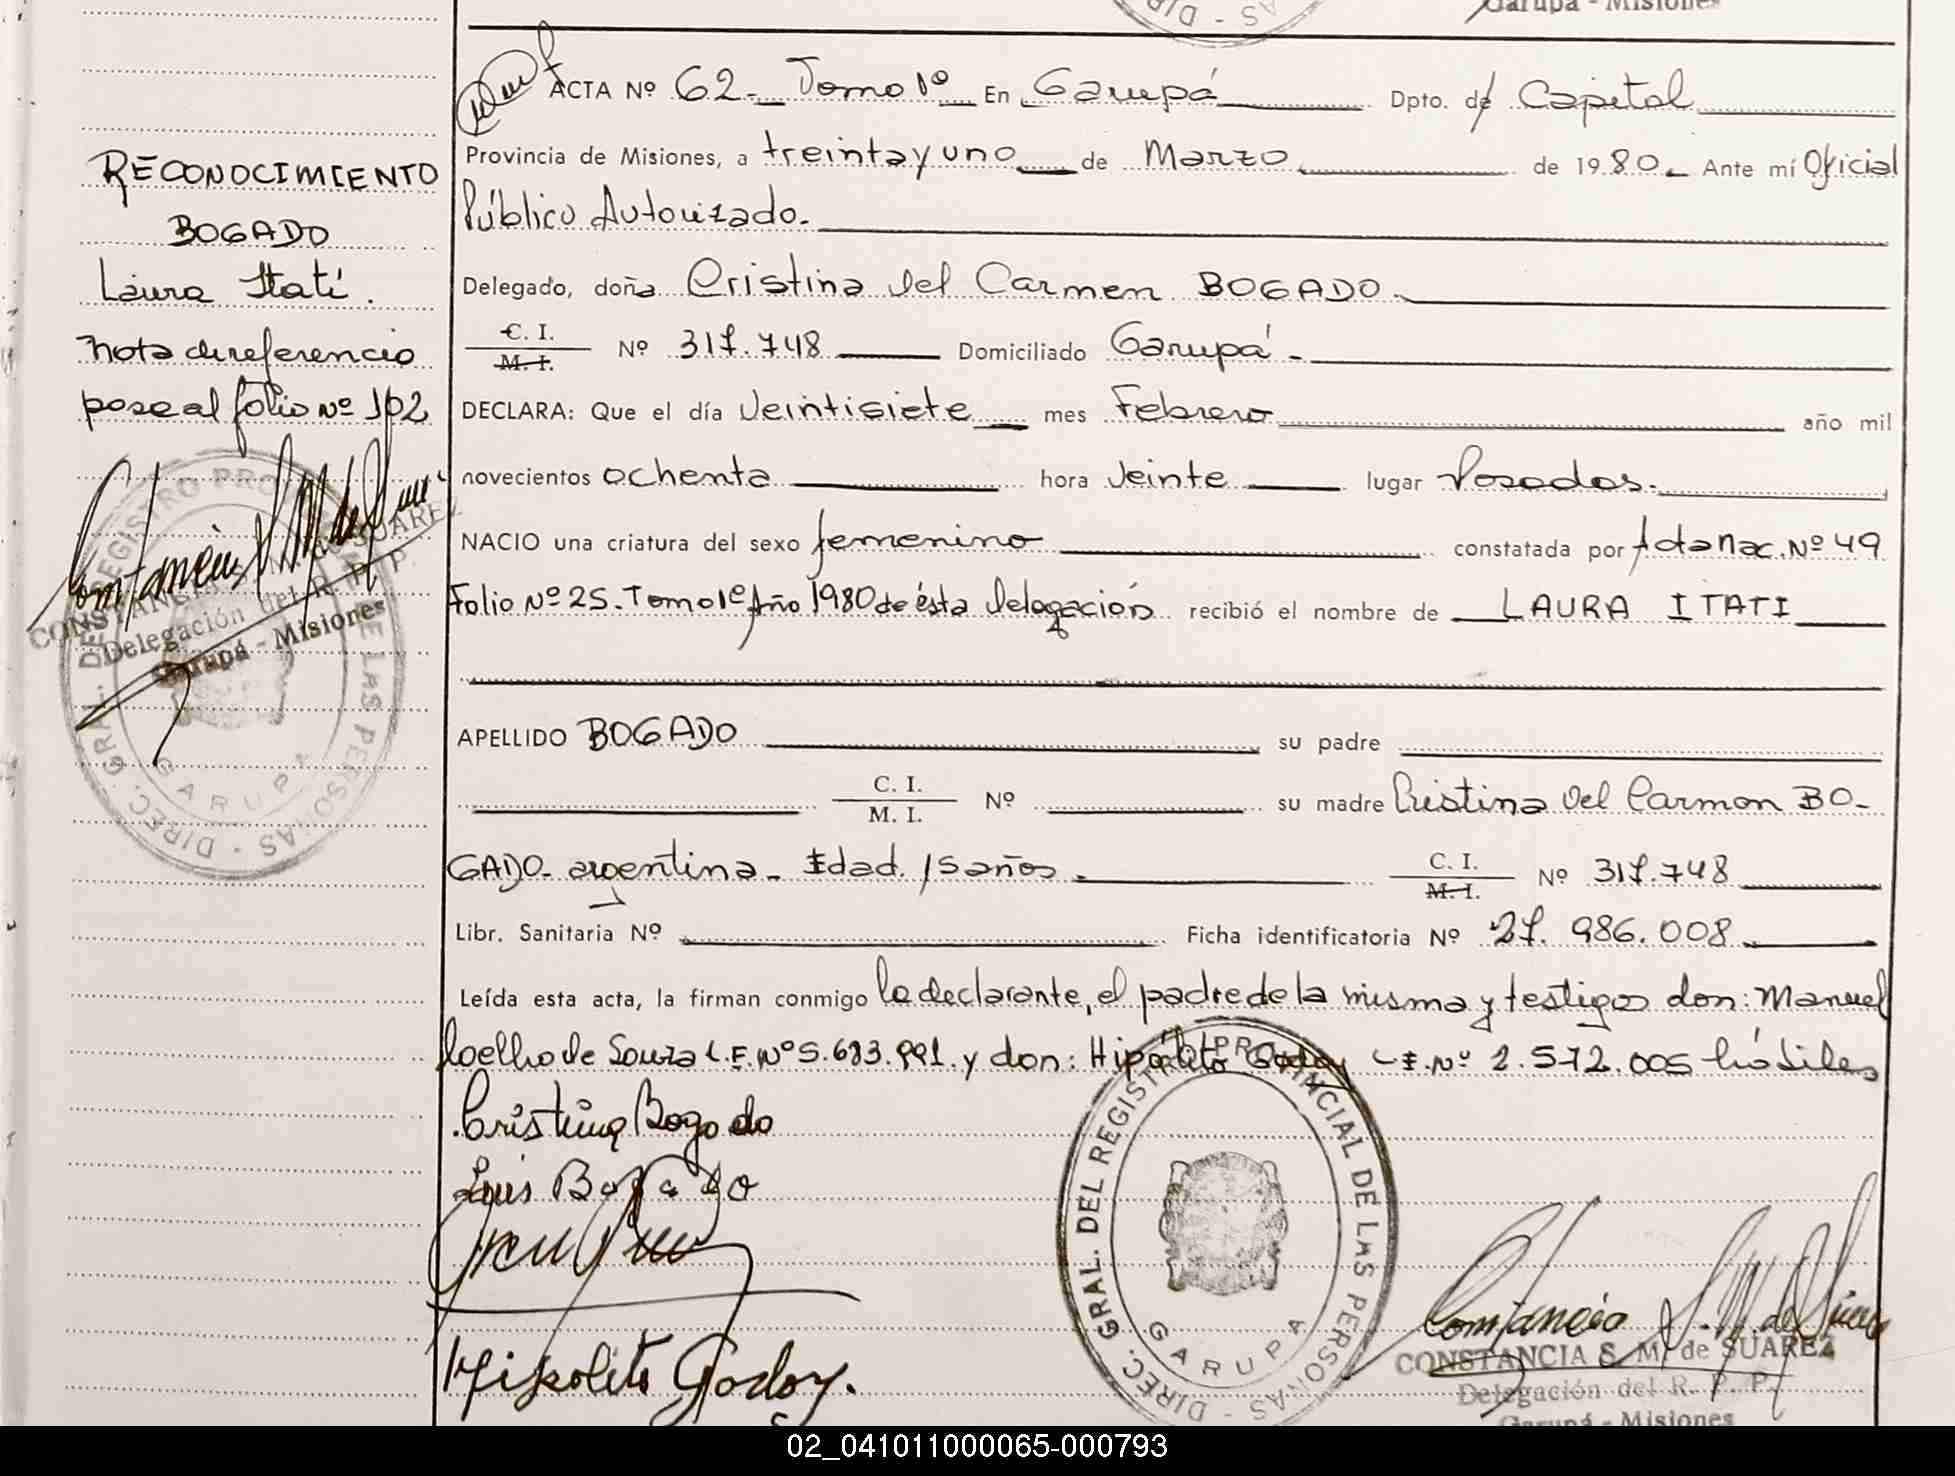 Garupá - Misiones
ACTA Nº 62.- Tomo 1º En Garupá Dpto. de Capital
Provincia de Misiones, a treinta y uno de Marzo de 1980.- Ante mí Oficial
Público Autorizado.
Delegado, doña Cristina del Carmen BOGADO.
C. I.
M. I. Nº 317.748 Domiciliado Garupá.-
DECLARA: Que el día Veintisiete mes Febrero año mil
novecientos ochenta hora Veinte lugar Posadas.
NACIO una criatura del sexo femenino constatada por Acta Nac. Nº 49
Folio Nº 25. Tomo 1º Año 1980 de ésta Delegación recibió el nombre de LAURA ITATI
APELLIDO BOGADO su padre
C. I.
M. I. Nº su madre Cristina del Carmen BO-
GADO- argentina- Edad 15 años.
C. I.
M. I. Nº 317.748
Libr. Sanitaria Nº Ficha identificatoria Nº 27.986.008
Leída esta acta, la firman conmigo la declarante, el padre de la misma y testigos don: Manuel
Coelho de Souza L.E. Nº 5.683.991. y don: Hipólito Godoy L.E. Nº 2.572.005 hábiles
Cristina Bogado
Luis Bogado
Hipolito Godoy.
DIREC. GRAL. DEL REGISTRO PROVINCIAL DE LAS PERSONAS -
GARUPA
Constancia S. M. de Suarez
CONSTANCIA S. M. de SUAREZ
Delegación del R. P. P.
Garupá - Misiones
RECONOCIMIENTO
BOGADO
Laura Itatí.
Nota de referencia
pase al folio Nº 102
Constancia S. M. de Suarez
CONSTANCIA S. M. de SUAREZ
Delegación del R. P. P.
Garupá - Misiones
DIREC. GRAL. DEL REGISTRO PROVINCIAL DE LAS PERSONAS -
GARUPA
02_041011000065-000793